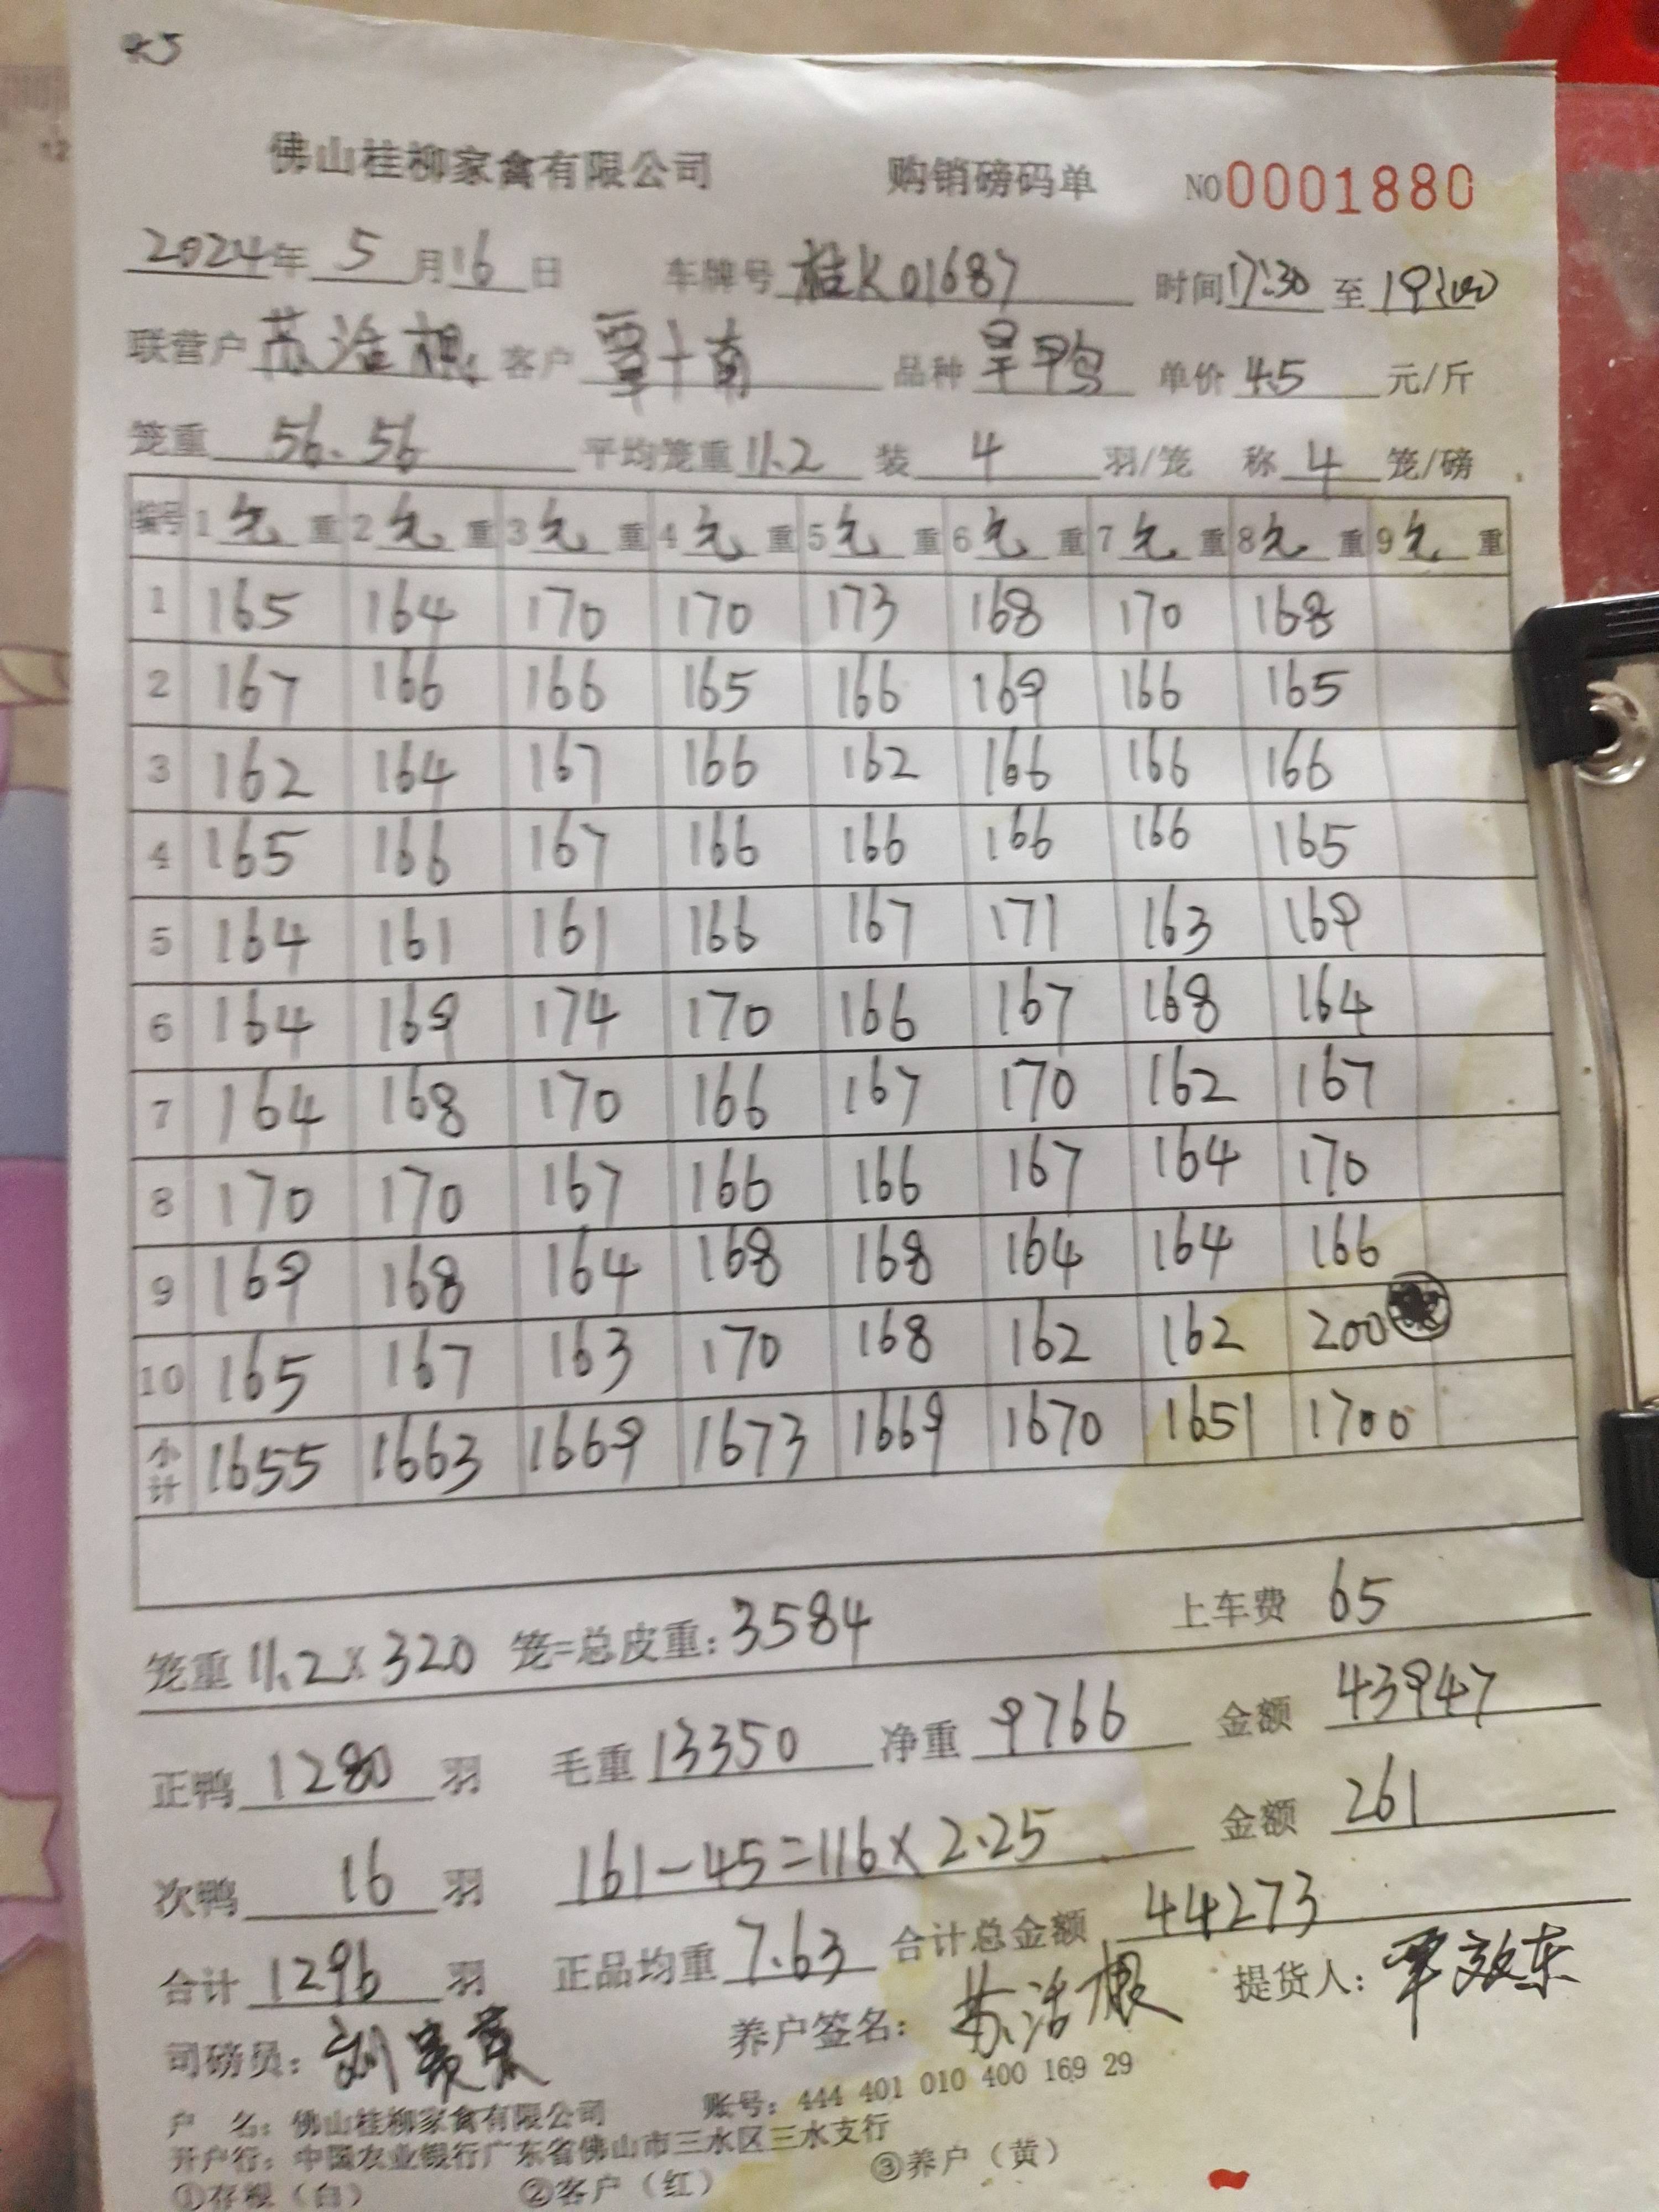 佛山桂柳家禽有限公司 购销磅码单 NO 0001880
2024年 5 月 16 日 车牌号 桂K01687 时间 17:30 至 19:00
联营户 苏浩根 客户 覃十南 品种 旱鸭 单价 4.5 元/斤
笼重 56.56 平均笼重 11.2 装 4 羽/笼 称 4 笼/磅
编号 1 毛 重 2 毛 重 3 毛 重 4 毛 重 5 毛 重 6 毛 重 7 毛 重 8 毛 重 9 毛 重
1 165 164 170 170 173 168 170 168
2 167 166 166 165 166 169 166 165
3 162 164 167 166 162 166 166 166
4 165 166 167 166 166 166 166 165
5 164 161 161 166 167 171 163 169
6 164 169 174 170 166 167 168 164
7 164 168 170 166 167 170 162 167
8 170 170 167 166 166 167 164 170
9 169 168 164 168 168 164 164 166
10 165 167 163 170 168 162 162 200
小计 1655 1663 1669 1673 1669 1670 1651 1700
笼重 11.2×320 笼=总皮重: 3584 上车费 65
正鸭 1280 羽 毛重 13350 净重 9766 金额 43947
次鸭 16 羽 161-45=116×2.25 金额 261
合计 1296 羽 正品均重 7.63 合计总金额 44273
司磅员: 养户签名: 提货人: 覃
户 名: 佛山桂柳家禽有限公司 账号: 444 401 010 400 169 29
开户行: 中国农业银行广东省佛山市三水区三水支行
①存根（白） ②客户（红） ③养户（黄）